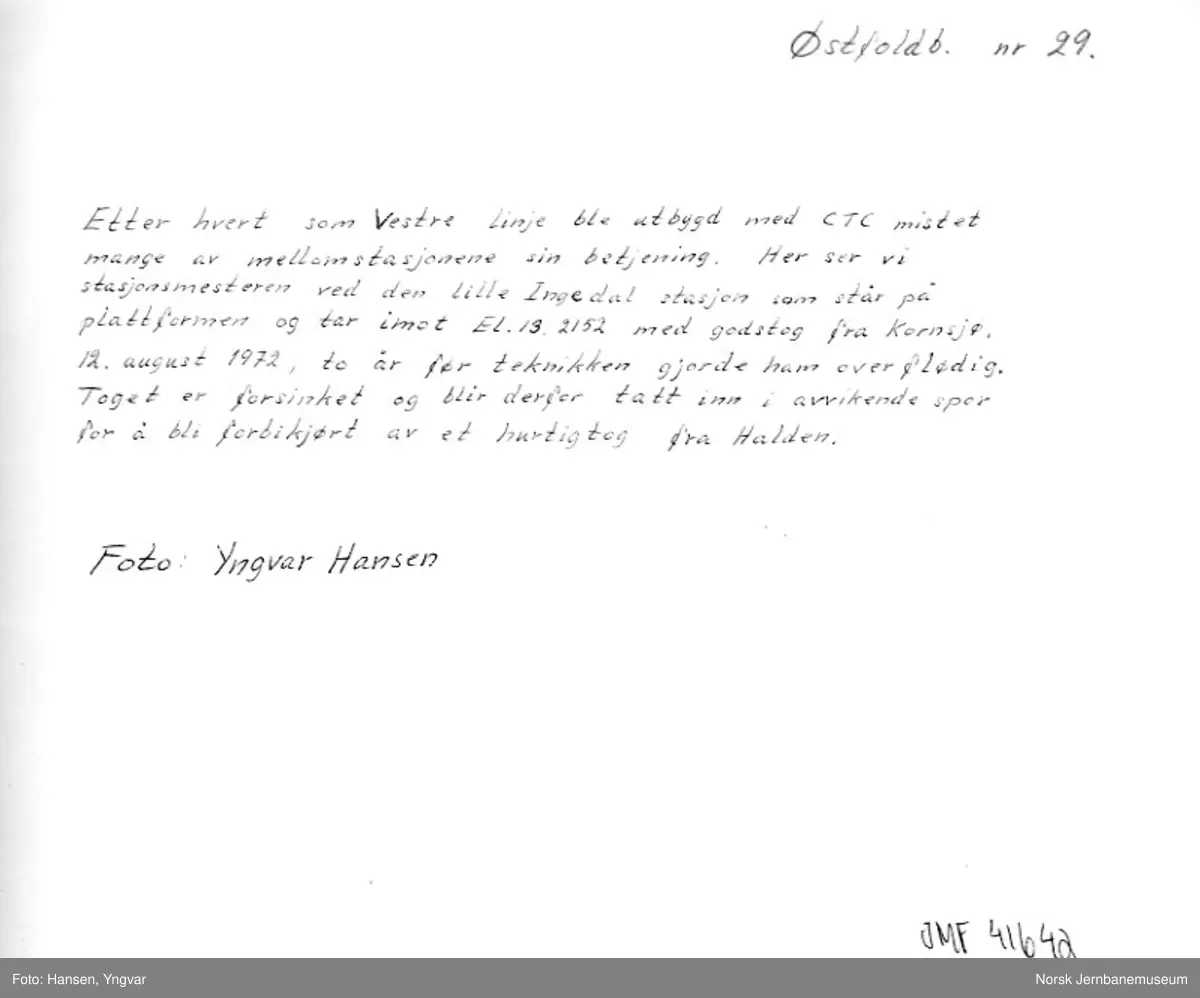 Østfoldb. nr 29.
Etter hvert som Vestre linje ble utbygd med CTC mistet
mange av mellomstasjonene sin betjening. Her ser vi
stasjonsmesteren ved den lille Ingedal stasjon som står på
plattformen og tar imot El. 13. 2152 med godstog fra Kornsjø.
12. august 1972, to år før teknikken gjorde ham overflødig.
Toget er forsinket og blir derfor tatt inn i avvikende spor
for å bli forbikjørt av et hurtigtog fra Halden.
Foto: Yngvar Hansen
JMF 41642
Foto: Hansen, Yngvar
Norsk Jernbanemuseum